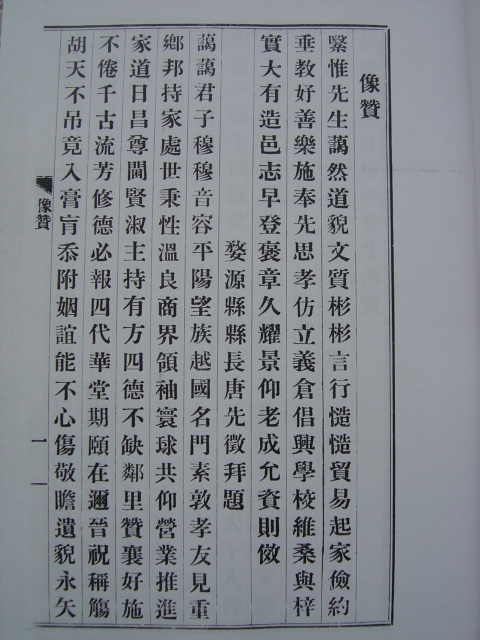 像贊
繄惟先生藹然道貌文質彬彬言行慥慥貿易起家儉約
垂教好善樂施奉先思孝仿立義倉倡興學校維桑與梓
實大有造邑志早登褒章久耀景仰老成允資則傚
婺源縣縣長唐先徵拜題
藹藹君子穆穆音容平陽望族越國名門素敦孝友見重
鄉邦持家處世秉性溫良商界領袖寰球共仰營業推進
家道日昌尊閫賢淑主持有方四德不缺鄰里贊襄好施
不倦千古流芳修德必報四代華堂期頤在邇晉祝稱觴
胡天不吊竟入膏肓忝附姻誼能不心傷敬瞻遺貌永矢
像贊
一